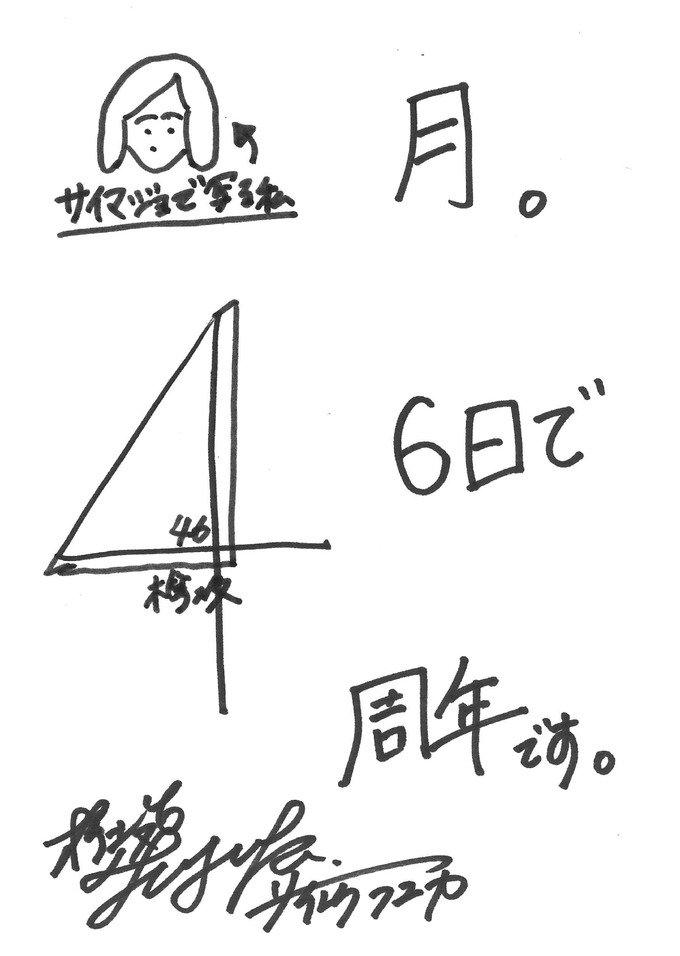 サイマジョで写る私
月。
4
6日で
46
欅坂
周年です。